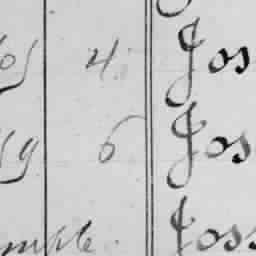 4 Jos
59 6 Jos
mple. Joss